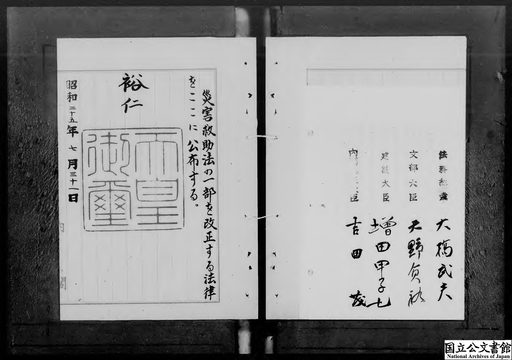 災害救助法の一部を改正する法律
をここに公布する。
裕仁
天皇
御璽
昭和二十五年七月三十一日
法務総裁 大橋武夫
文部大臣 天野貞祐
建設大臣 增田甲子七
内 臣 吉田茂
国立公文書館
National Archives of Japan